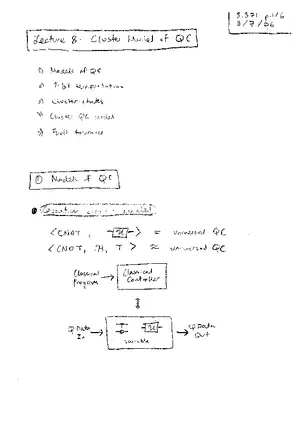 8.371 p.1/6
3/7/06
Lecture 8: Cluster Model of QC
1) Models of QC
2) 1-bit teleportation
3) Cluster states
4) Cluster QC model
5) Fault tolerance
① Models of QC
Quantum circuit model
⟨CNOT, -[U]-⟩ = universal QC
⟨CNOT, H, T⟩ ≈ universal QC
Classical Program → Classical Controller
Q Data In → → Q Data Out
variable